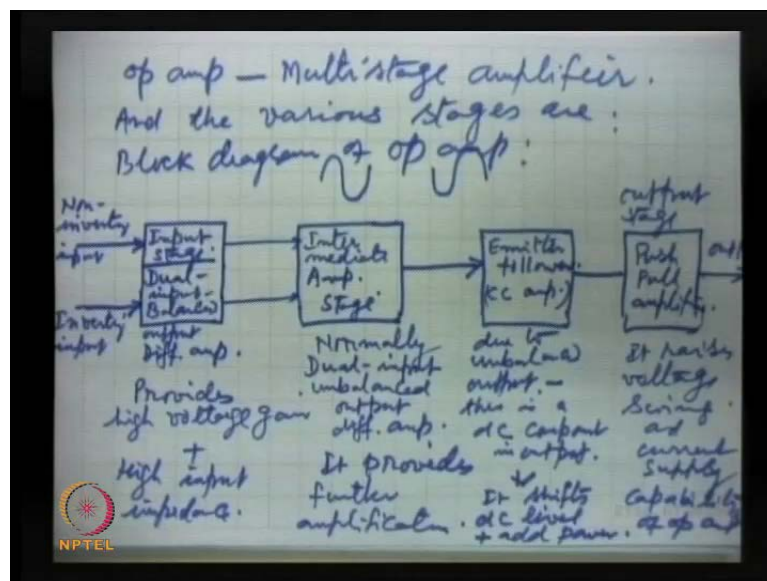 op amp — Multistage amplifier.
And the various stages are:
Block diagram of op amp:
Non-
inverting
input
Inverting
input
Input
stage
Dual-
input-
Balanced
output
Diff. amp.
Provides
high voltage gain
+
High input
impedance.
Inter
mediate
Amp.
Stage
Normally
Dual-input
unbalanced
output
diff. amp.
It provides
further
amplification.
Emitter
follower
(CC amp.)
due to
unbalanced
output —
this is a
dc
in output.
It shifts
dc level
+ add power.
output
stage
Push
Pull
amplifier.
It raises
voltage
swing
ad
current
supply
capability
of op amp
NPTEL